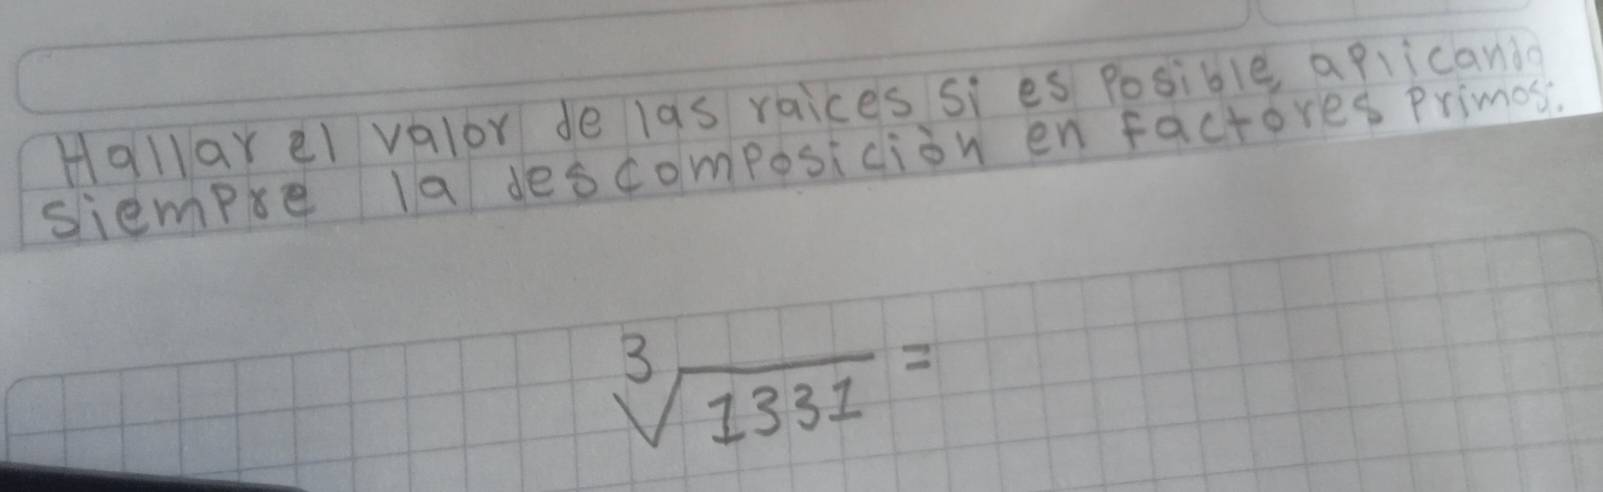 Hallar el valor de las raices si es posible, aplicando
siempre la descomposición en factores primos:
3√1331 =